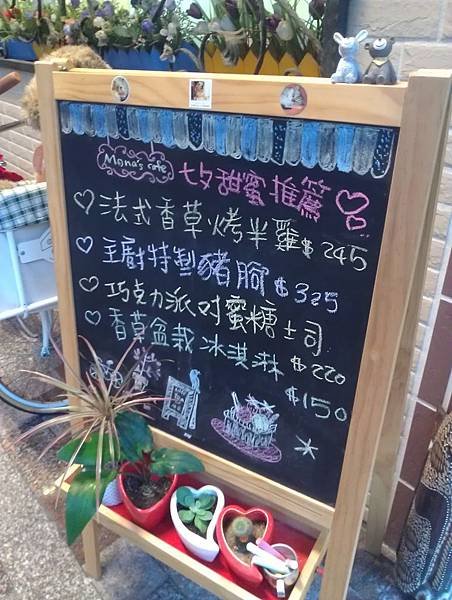 Mona's cafe 七夕甜蜜推薦
法式香草烤半雞 $245
主廚特製豬腳 $325
巧克力派对蜜糖土司 $220
香草盆栽冰淇淋 $150